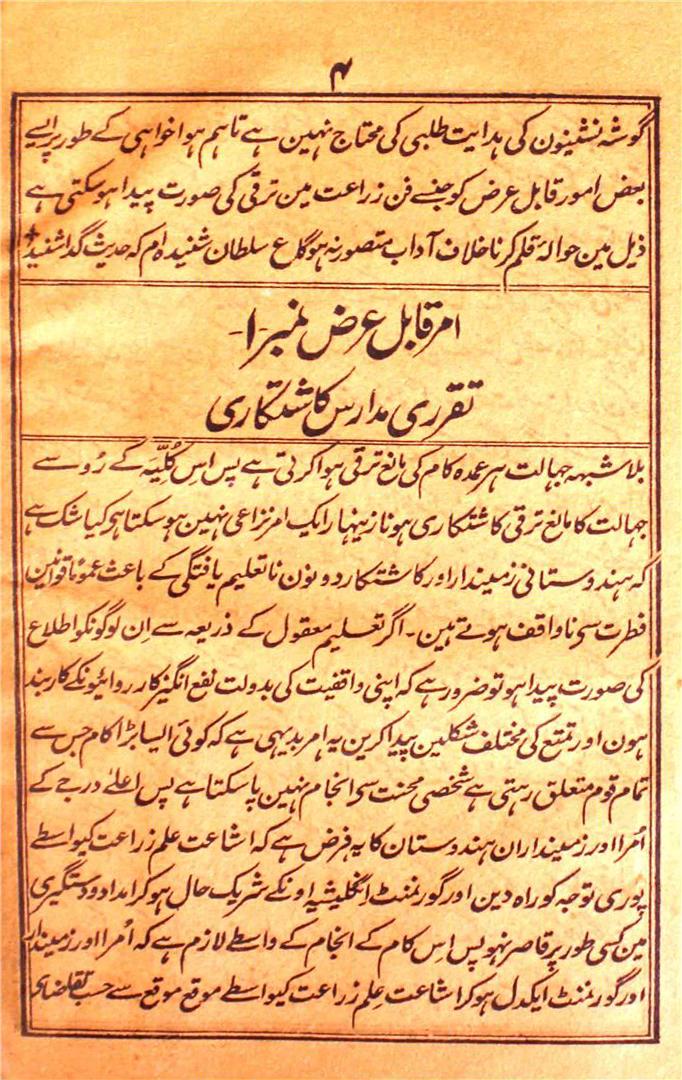 ۴
گوشہ نشینون کی ہدایت طلبی کی محتاج نہین ہے تاہم ہوا خواہی کے طور پر ایسے
بعض امور قابل عرض کو جنسے فن زراعت مین ترقی کی صورت پیدا ہو سکتی ہے
ذیل مین حوالۂ قلم کرنا خلاف آداب متصور نہ ہوگا ع سلطان شنیدہ ام کہ حدیث گدا شنید
امر قابل عرض نمبر ۱-
تقرری مدارس کاشتکاری
بلا شبہہ جہالت ہر عمدہ کام کی مانع ترقی ہوا کرتی ہے پس اس کُلیّہ کے رُو سے
جہالت کا مانع ترقی کاشتکاری ہونا زینہار ایک امر نزاعی نہین ہو سکتا ہی کیا شک ہے
کہ ہندوستانی زمیندار اور کاشتکار دونون ناتعلیم یافتگی کے باعث عموماً قوانین
فطرت سی ناواقف ہوتے ہین - اگر تعلیم معقول کے ذریعہ سے اِن لوگونکو اطلاع
کی صورت پیدا ہو تو ضرور ہے کہ اپنی واقفیت کی بدولت نفع انگیز کارروائیونکے کاربند
ہون اور تمتع کی مختلف شکلین پیدا کرین یہ امر بدیہی ہے کہ کوئی ایسا بڑا کام جس سے
تمام قوم متعلق رہتی ہے شخصی محنت سی انجام نہین پا سکتا ہے پس اعلیٰ درجے کے
اُمرا اور زمینداران ہندوستان کا یہ فرض ہے کہ اشاعت علم زراعت کیواسطے
پوری توجہ کو راہ دین اور گورنمنٹ انگلیشیہ اونکے شریک حال ہو کر امداد و دستگیری
مین کسی طور پر قاصر نہو پس اِس کام کے انجام کے واسطے لازم ہے کہ اُمرا اور زمیندار
اور گورنمنٹ ایکدل ہو کر اشاعت عِلم زراعت کیواسطے موقع موقع سے حسب تقاضای